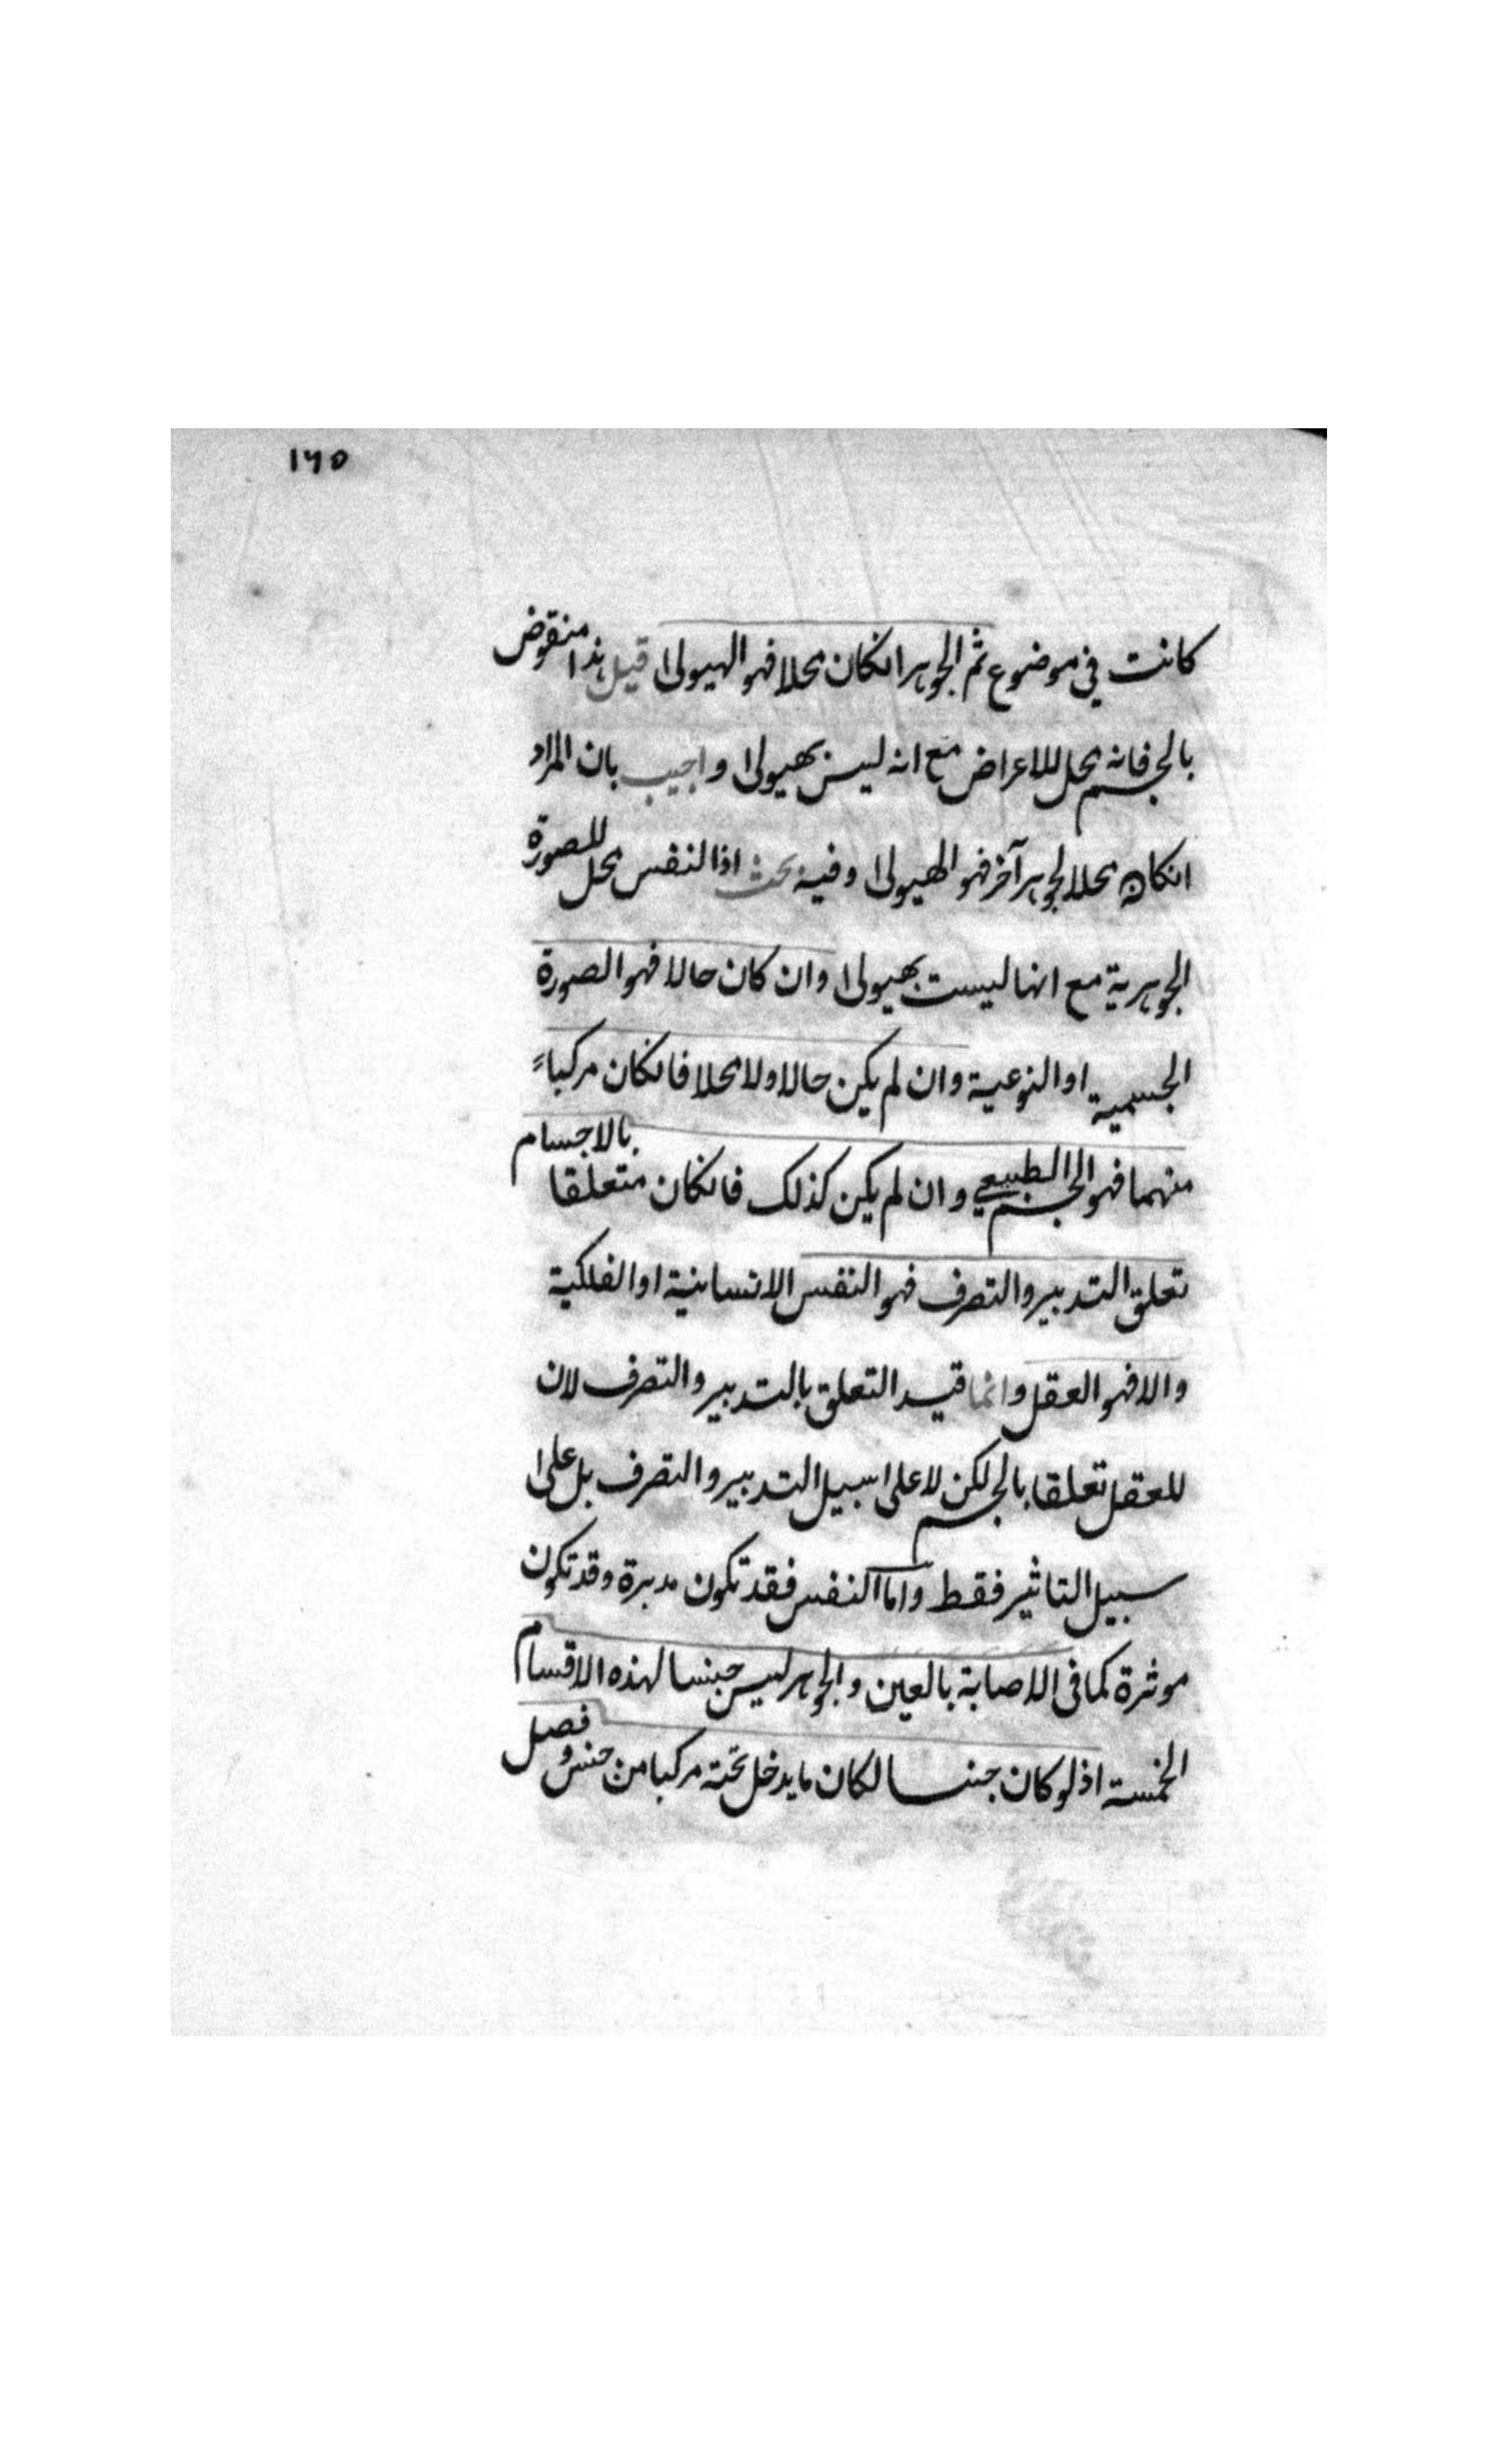 ١٦٥
كانت في موضوع ثم الجوهر انكان محلا فهو الهيولى قيل هذا منقوض
بالجسم فانه محل للاعراض مع انه ليس بهيولى واجيب بان المراد
انكان محلا لجوهر آخر فهو الهيولى وفيه بحث اذا لنفس محل للصورة
الجوهرية مع انها ليست بهيولى وان كان حالا فهو الصورة
الجسمية او النوعية وان لم يكن حالا ولا محلا فانكان مركباً
منهما فهو الجسم الطبيعي وان لم يكن كذلك فانكان متعلقا بالاجسام
تعلق التدبير والتصرف فهو النفس الانسانية او الفلكية
والا فهو العقل وانما قيد التعلق بالتدبير والتصرف لان
للعقل تعلقا بالجسم لكن لا على سبيل التدبير والتصرف بل على
سبيل التاثير فقط واما النفس فقد تكون مدبرة وقد تكون
موثرة كما في الاصابة بالعين والجوهر ليس جنسا لهذه الاقسام
الخمسة اذ لو كان جنسا لكان ما يدخل تحته مركبا من جنس و فصل